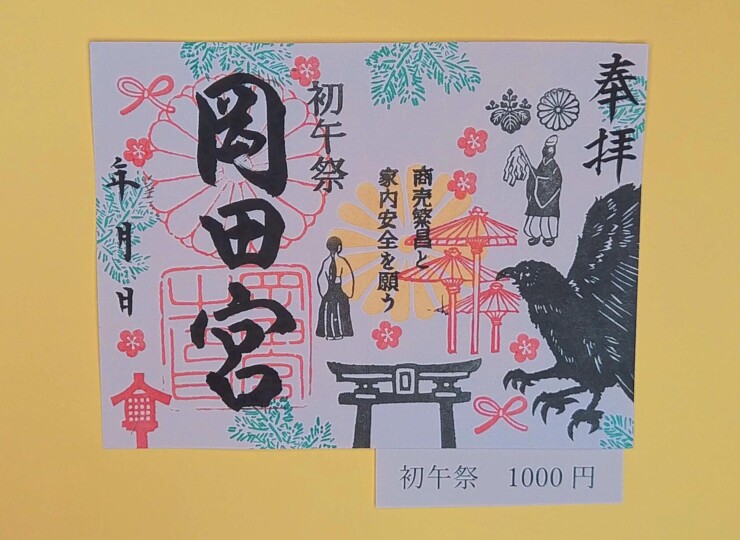 奉拝
商売繁昌と
家内安全を願う
初午祭
岡田宮
年月日
初午祭 1000円